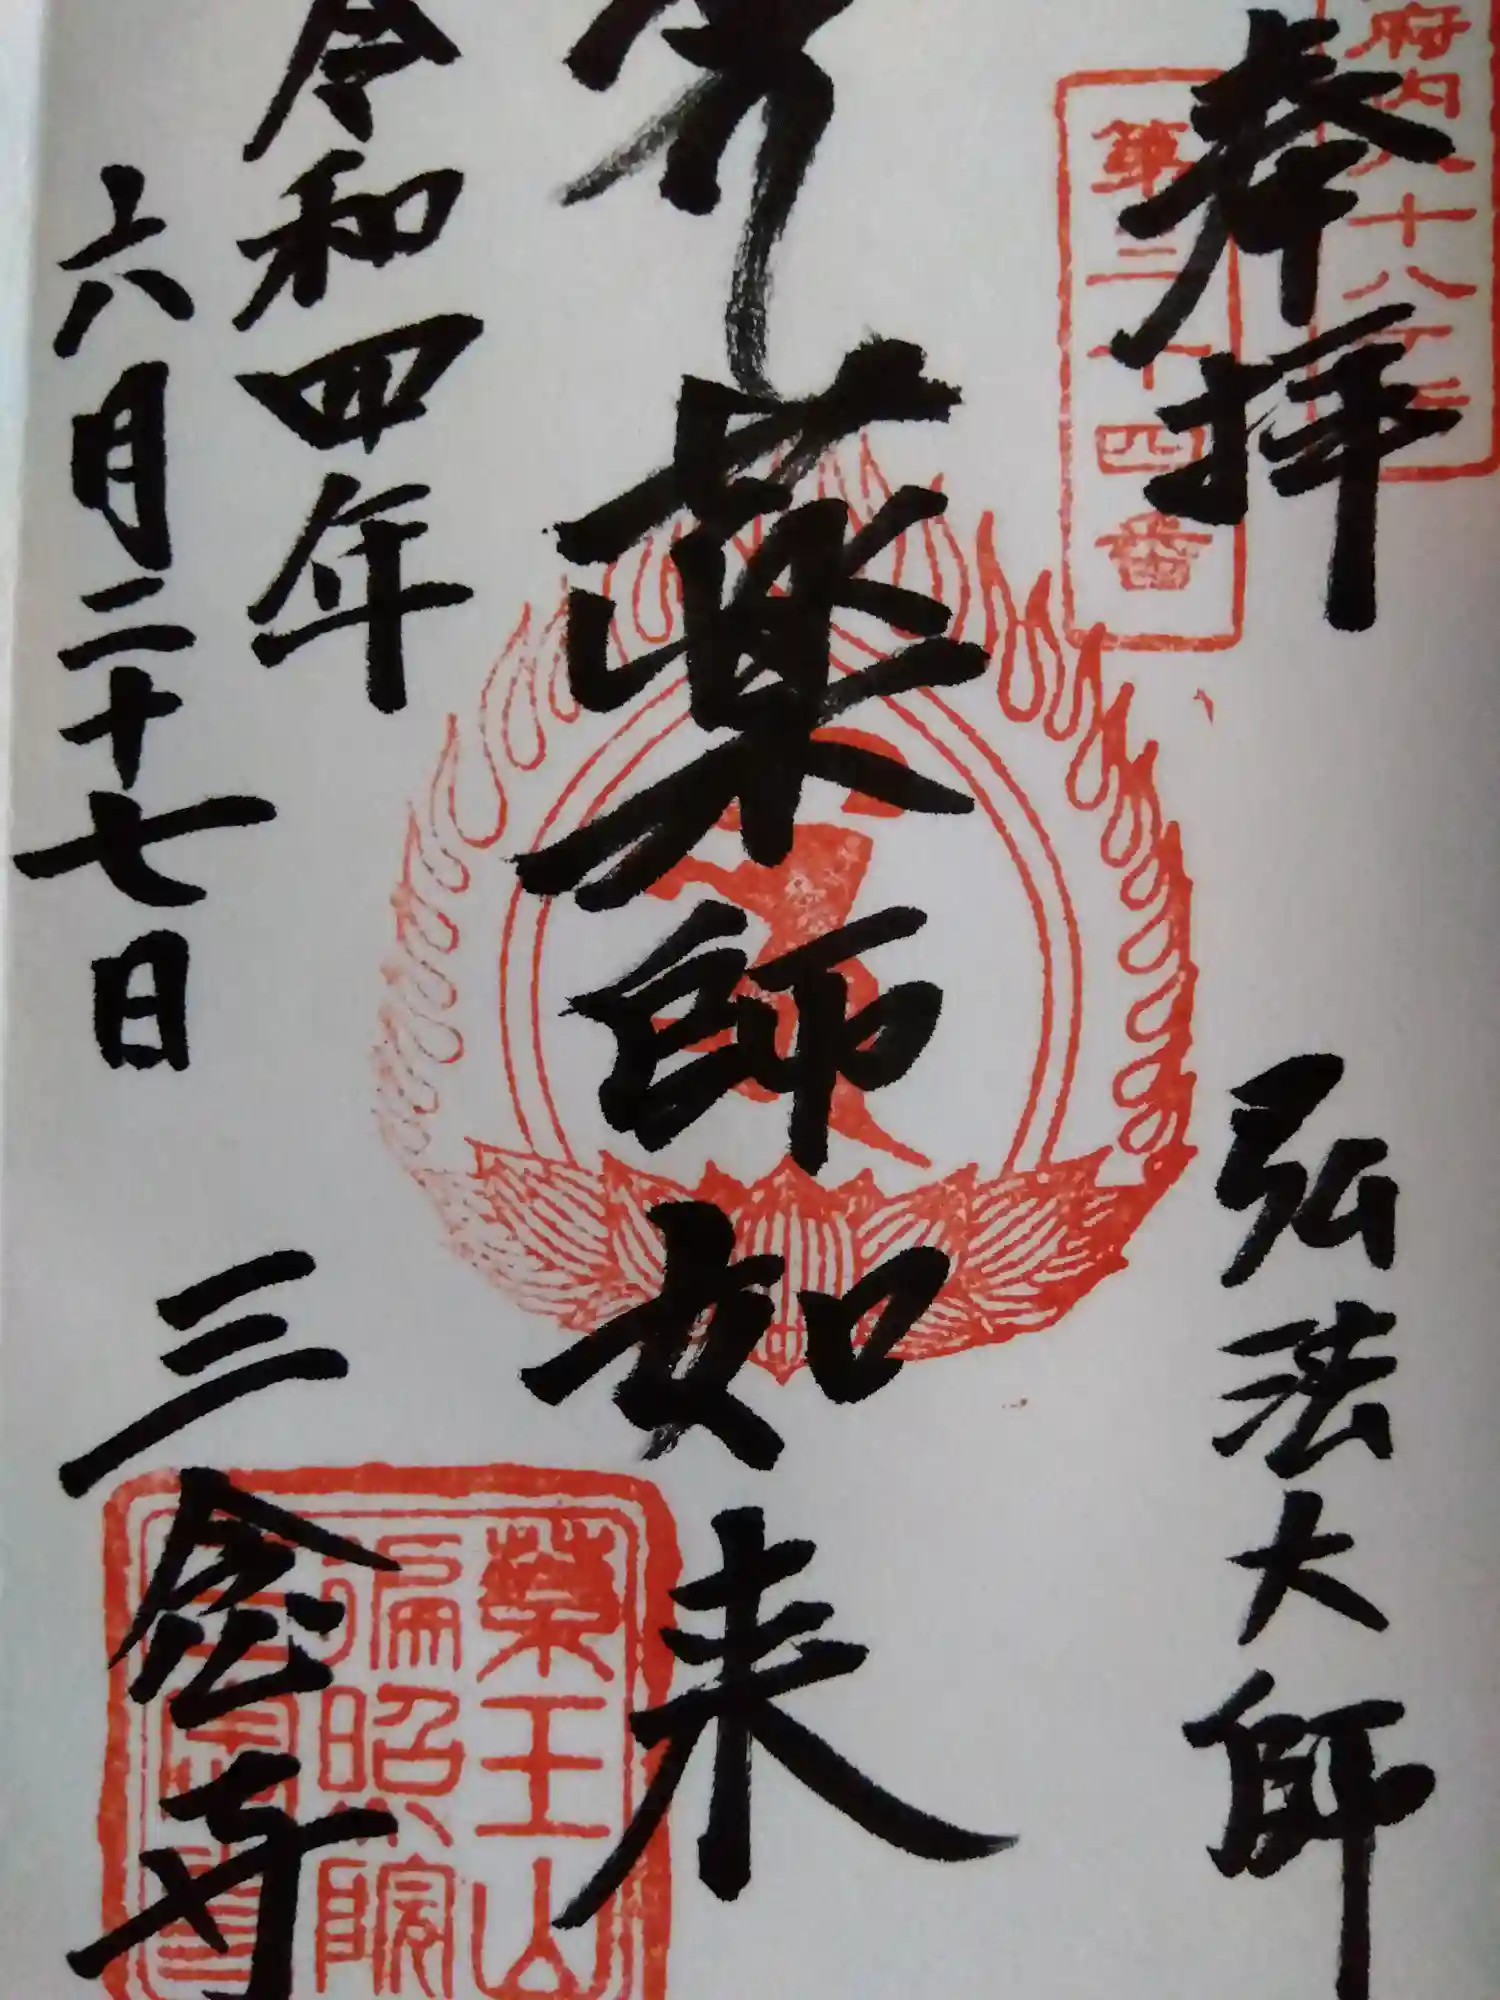 府内八十八ケ所
第三十四番
奉拝
弘法大師
薬師如来
令和四年
六月二十七日
三念寺
薬王山
遍照院